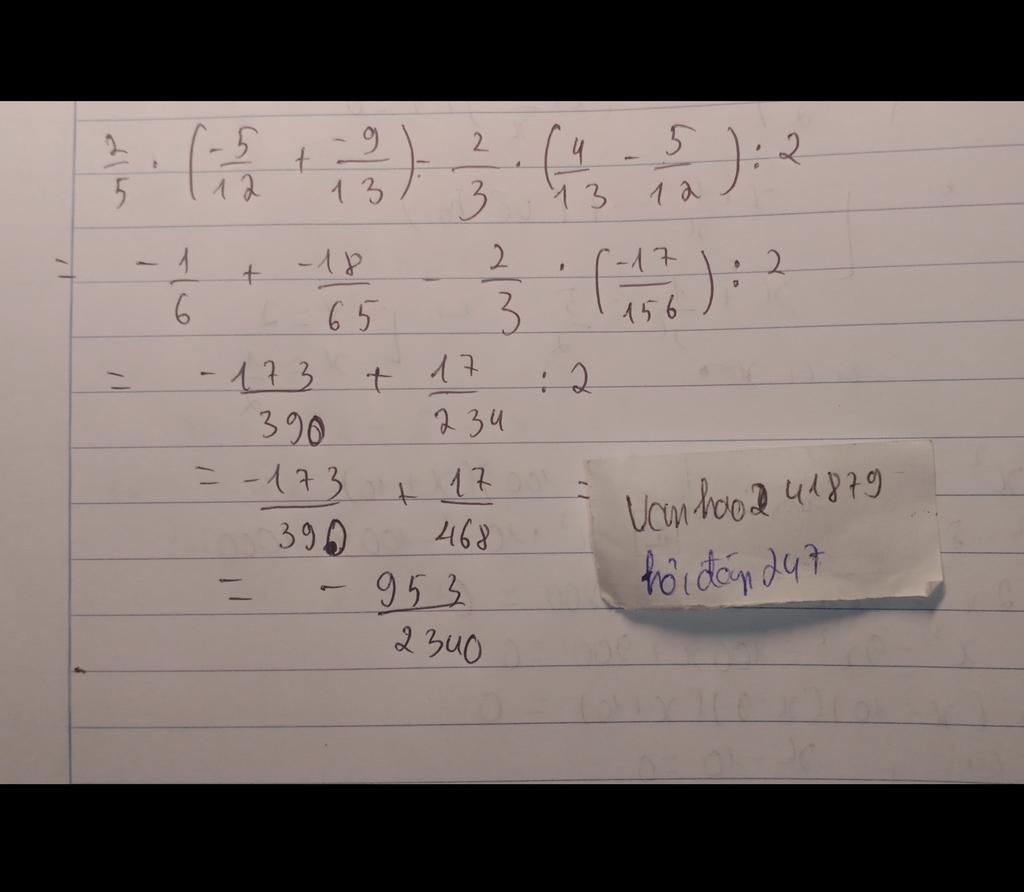 2/5 . (-5/12 + -9/13) - 2/3 . (4/13 - 5/12) : 2
= -1/6 + -18/65 - 2/3 . (-17/156) : 2
= -173/390 + 17/234 : 2
= -173/390 + 17/468 =
= -953/2340
Vanhao2 41879
hỏi đáp 247